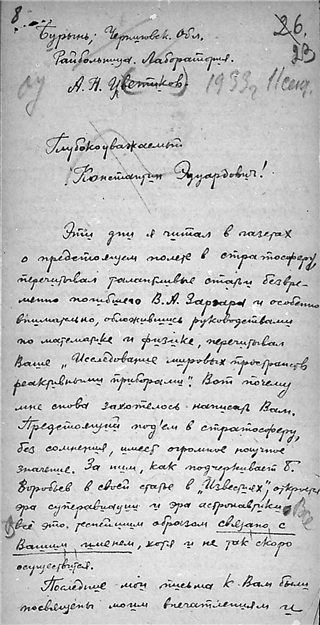 8. 26.
Бурынь, Черниговск. Обл. 23
Райбольница. Лаборатория.
А. Н. Цветиков 1933 г. 11 сент.
Глубокоуважаемый
Константин Эдуардович!
Эти дни я читал в газетах
о предстоящем полете в стратосферу,
перечитывал талантливые статьи безвре-
менно погибшего В. А. и особенно
внимательно, обложившись руководствами
по математике и физике, перечитывал
Ваше „Исследование мировых пространств
реактивными приборами“. Вот почему
мне снова захотелось написать Вам.
Предстоящий под'ем в стратосферу,
без сомнения, имеет огромное научное
значение. За ним, как подчеркивает Б.
Воробьев в своей статье в „Известиях“,
эра суперавиации и эра астронавтики.
Всё это теснейшим образом связано с
Вашим именем, хотя и не так скоро
осуществится.
Последние мои письма к Вам были
посвящены моим впечатлениям и